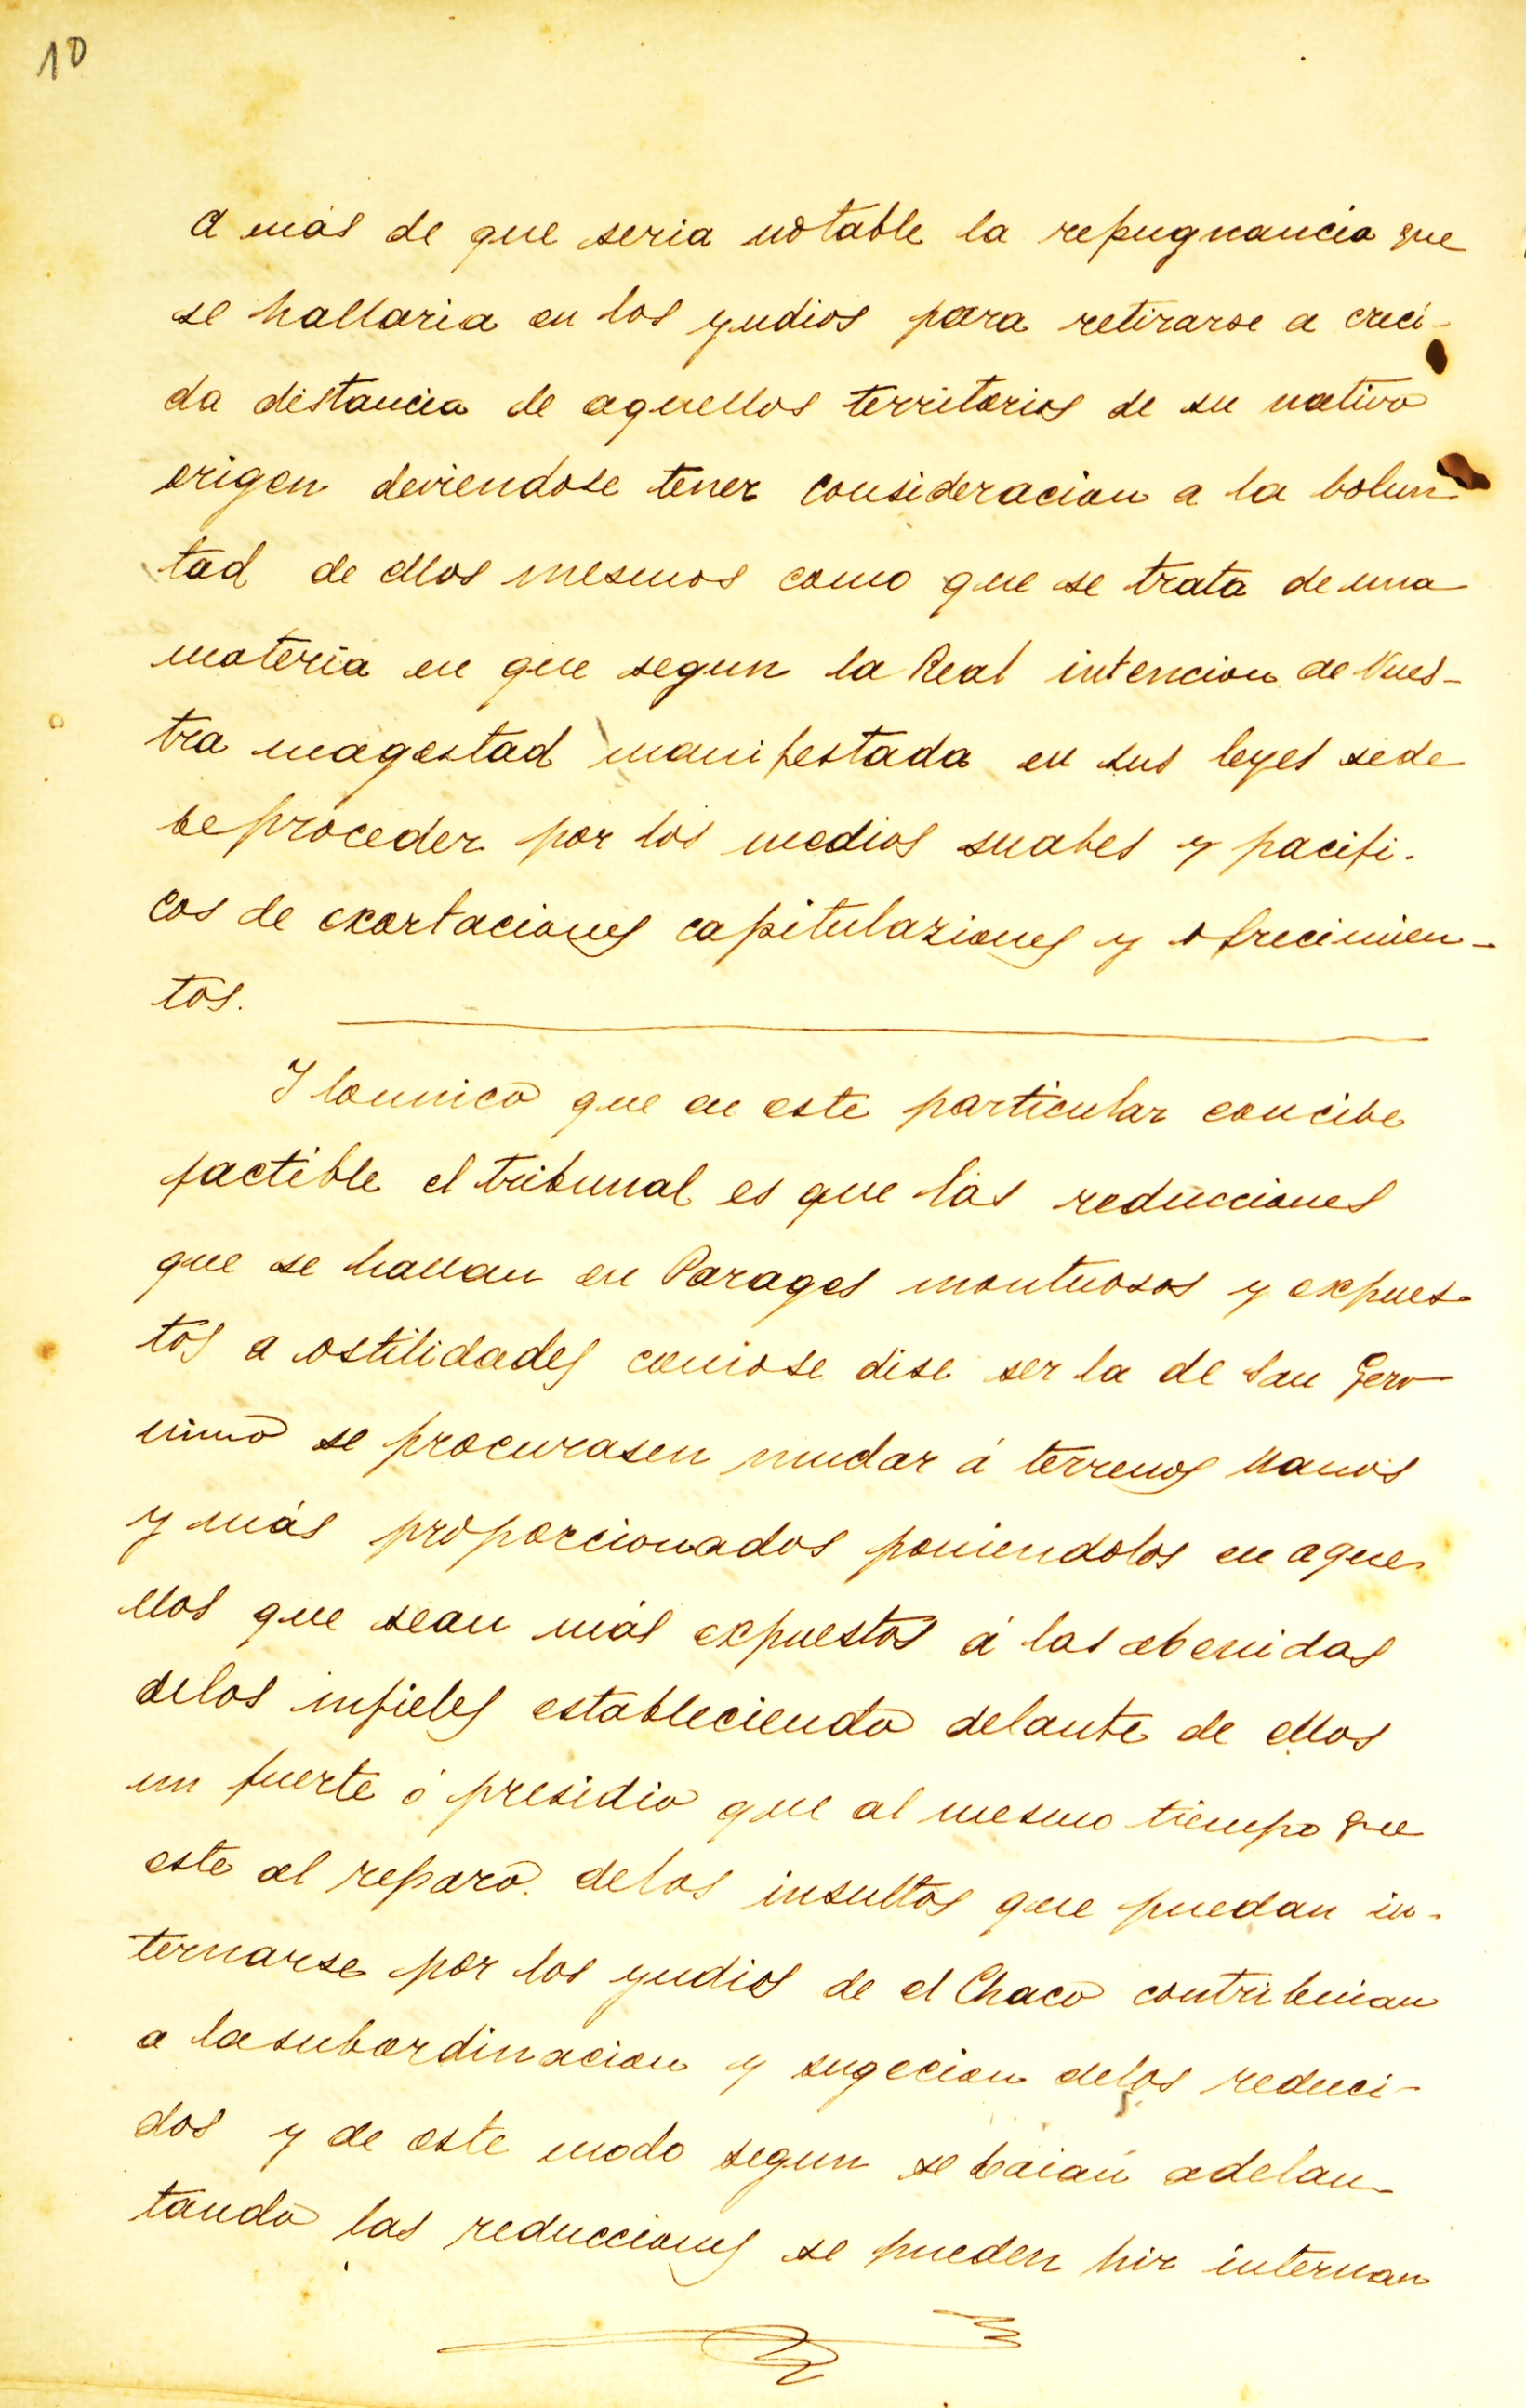 10
a más de que seria notable la repugnancia que
se hallaria en los yndios para retirarse a creci-
da distancia de aquellos territorios de su nativo
origen deviendose tener consideracion a la bolun-
tad de ellos mesmos como que se trata de una
materia en que segun la Real intencion de Vues-
tra magestad manifestada en sus leyes sede
be proceder por los medios suabes y pacifi-
cos de exortaciones capitulaziones y ofrecimien-
tos.
Y lounico que en este particular concibe
factible el tribunal es que las reducciones
que se hallan en Parages montuosos y expues-
tos a ostilidades comose dise ser la de San Gero
nimo se procurasen mudar á terrenos llanos
y más proporcionados poniendolos en aque
llos que sean más expuestos á las abenidas
delos infieles estableciendo delante de ellos
un fuerte ó presidio que al mesmo tiempo que
este al reparo delos insultos que puedan in-
ternarse por los yndios de el Chaco contribuian
a lasubordinacion y sugecion delos reduci-
dos y de este modo segun se baian adelan-
tando las reducciones se pueden hir internan